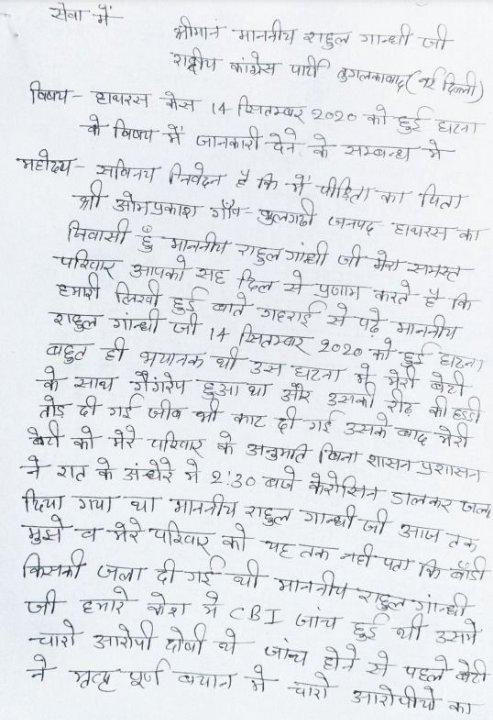 सेवा में
श्रीमान माननीय राहुल गान्धी जी
राष्ट्रीय कांग्रेस पार्टी तुगलकाबाद (नई दिल्ली)
विषय - हाथरस केस 14 सितम्बर 2020 को हुई घटना
के विषय में जानकारी देने के सम्बन्ध मे
महोदय - सविनय निवेदन है कि मैं पीड़िता का पिता
श्री ओमप्रकाश गाँव - बुलगढी जनपद हाथरस का
निवासी हूँ माननीय राहुल गांन्धी जी मेरा समस्त
परिवार आपको सह दिल से प्रणाम करते है कि
हमारी लिखी हुई बाते गहराई से पढ़े माननीय
राहुल गांन्धी जी 14 सितम्बर 2020 को हुई घटना
बहुत ही भयानक थी उस घटना मे मेरी बेटी
के साथ गैंगरेप हुआ था और उसकी रीढ़ की हड्डी
तोड दी गई जीव भी काट दी गई उसके बाद मेरी
बेटी को मेरे परिवार के अनुमति बिना शासन प्रशासन
ने रात के अंन्धेरे मे 2:30 बजे केरोसिन डालकर जला
दिया गया था माननीय राहुल गान्धी जी आज तक
मुझे व मेरे परिवार को यह तक नही पता कि बॉडी
किसकी जला दी गई थी माननीय राहुल गांन्धी
जी हमारे केश मे CBI जांच हुई थी उसमे
चारो आरोपी दोषी थे जांच होने से पहले बेटी
ने मृत्यु पूर्ण बयान मे चारो आरोपीयो का